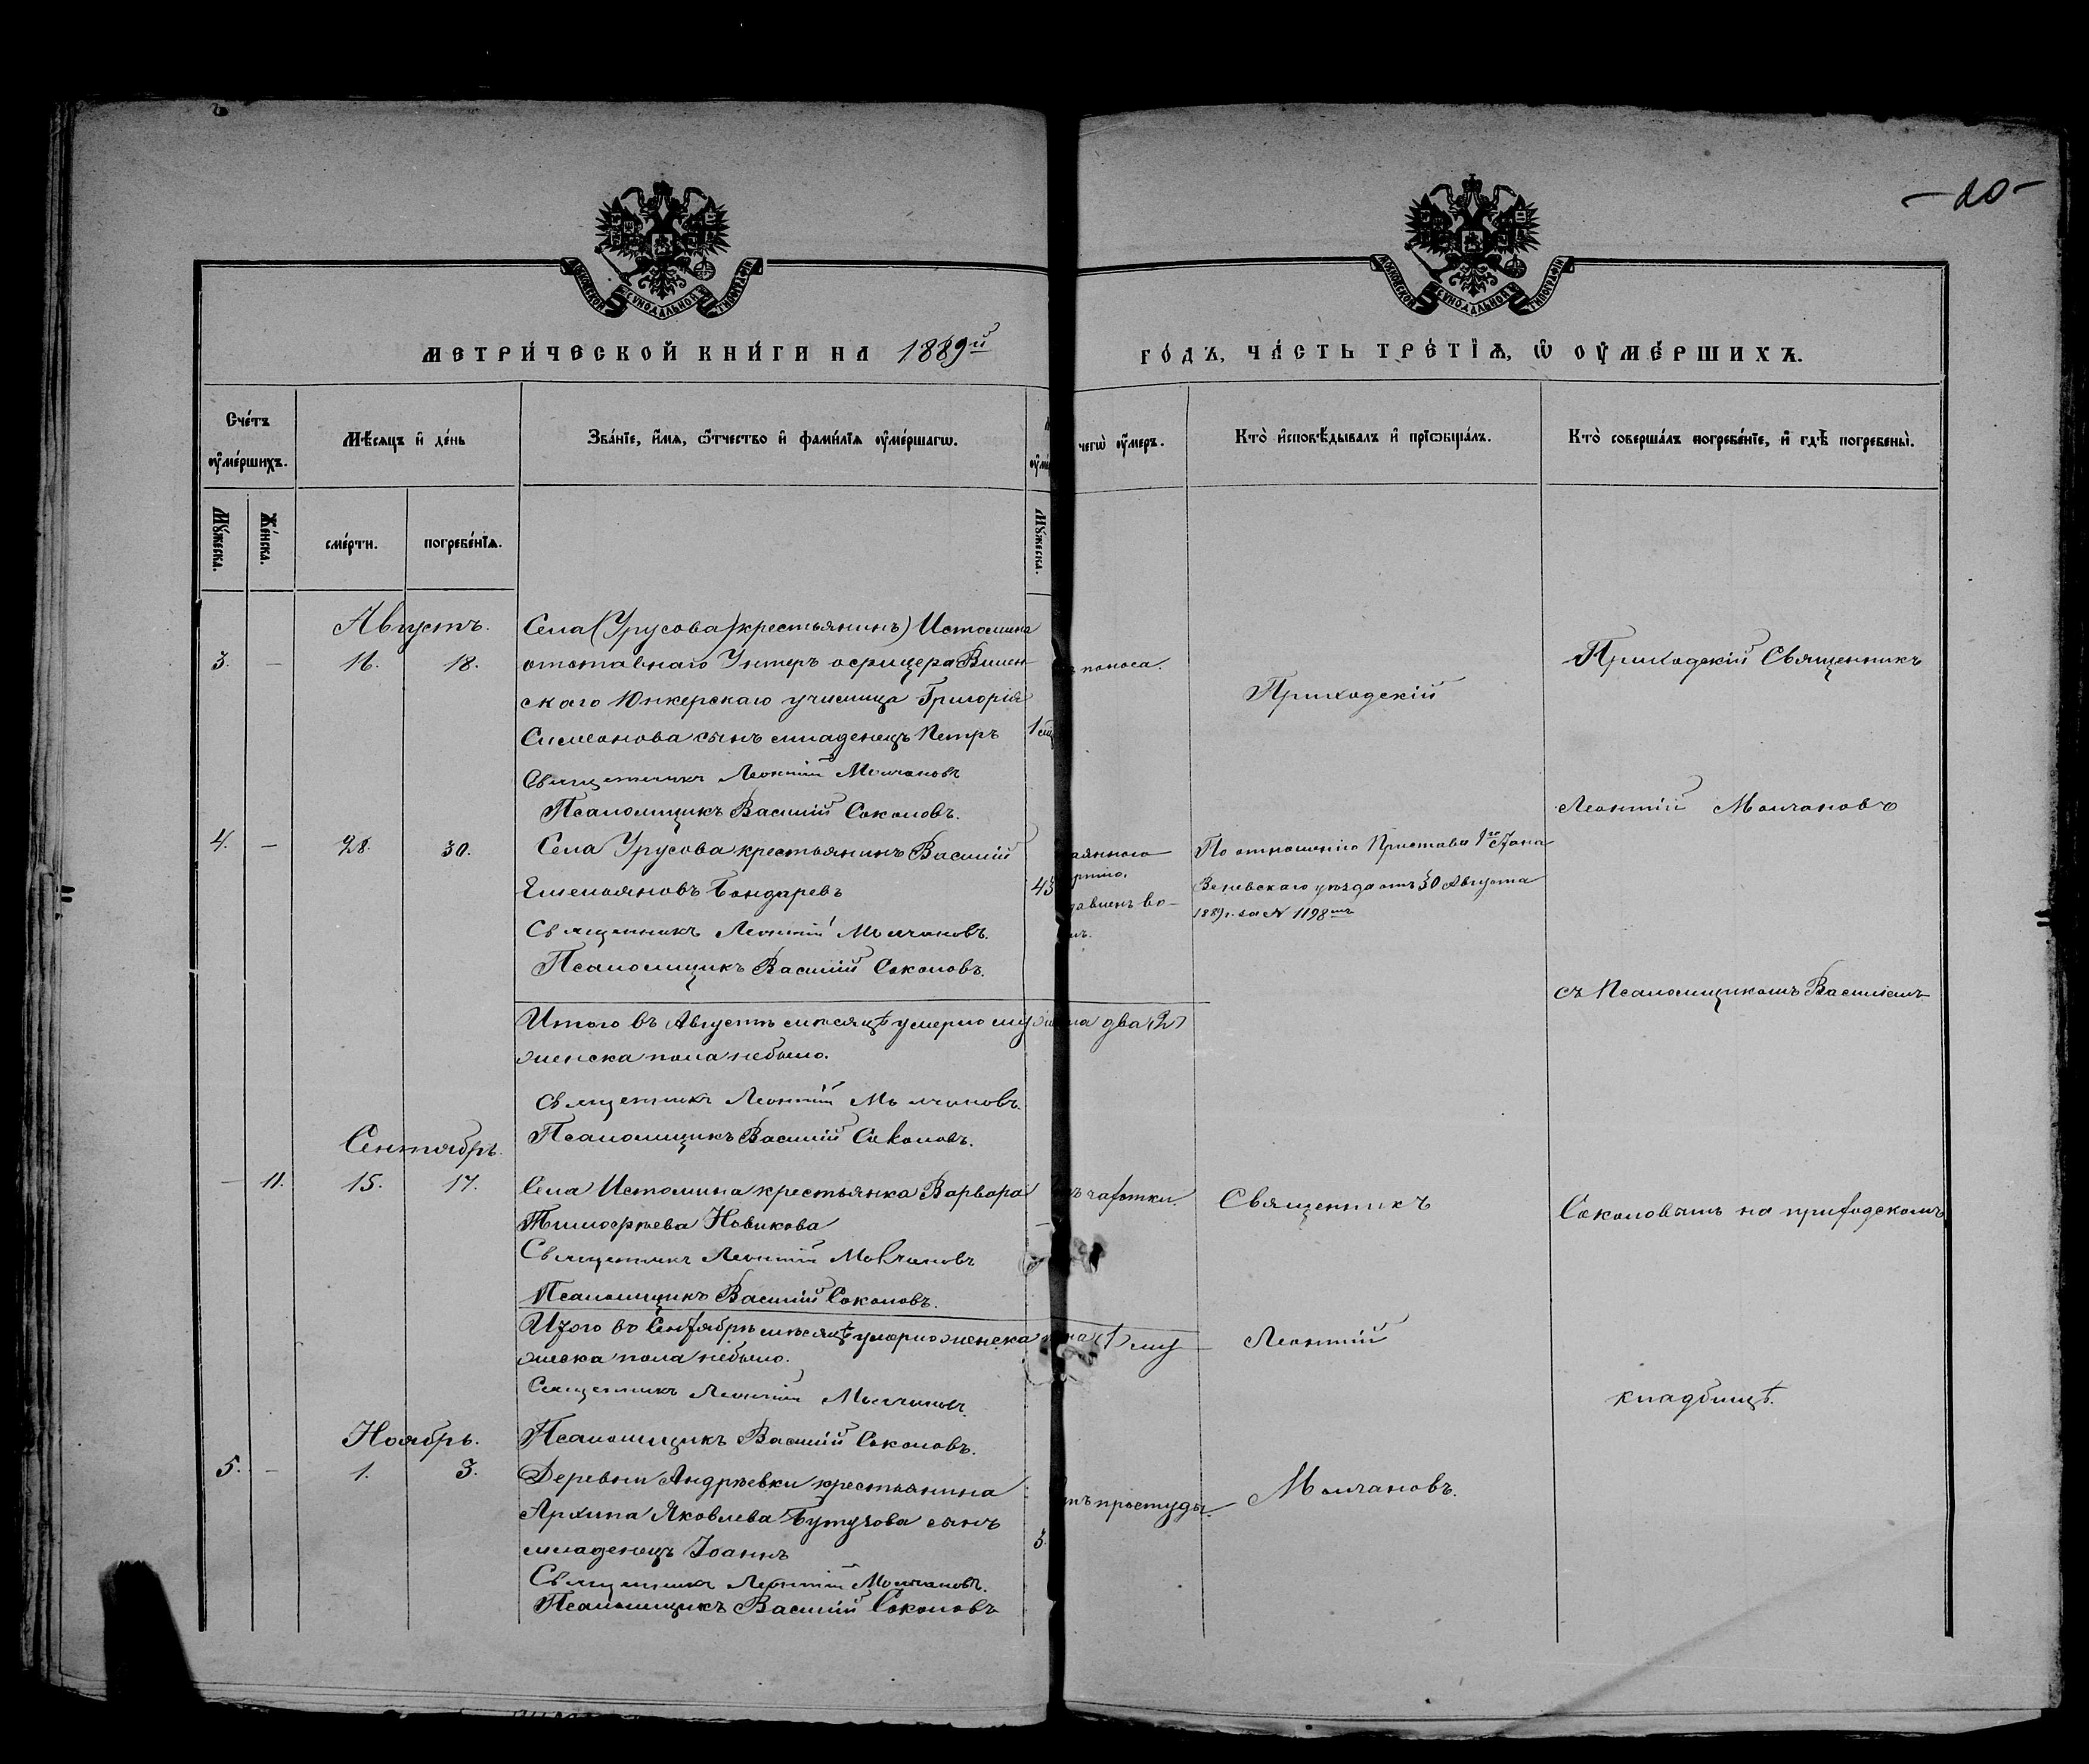 20
МОСКОВСКОЙ СУНОДАЛЬНОЙ ТИПОГРАФІИ
МОСКОВСКОЙ СУНОДАЛЬНОЙ ТИПОГРАФІИ
МЕТРИ́ЧЕСКОЙ КНИ́ГИ НА 1889й
ГО́ДЪ, ЧА́СТЬ ТРЕ́ТІѦ, Ѡ ОУМЕ́РШИХЪ.
Сче́тъ
оуме́ршихъ.
Мѣ́сяцъ и де́нь
Зва́нїе, и́мя, ѻ́тчество и фами́лїя оуме́ршагѡ.
чегѡ̀ оу́меръ.
Кто̀ и҆сповѣ́дывалъ и҆ прїѡбща́лъ.
Кто̀ соверша́лъ погребе́нїе, и҆ гдѣ̀ погребены̀.
Му́жеска.
Же́нска.
сме́рти.
погребе́нїѧ.
Му́жеска.
Августъ.
Села (Урусова крестьянинъ) Истомина
3. — 16. 18. отставнаго Унтеръ офицера Вилен-
скаго Юнкерскаго училища Григорія
Симеонова сынъ младенецъ Петръ
Священникъ Леонтій Молчановъ
Псаломщикъ Василій Соколовъ.
поноса.
Приходскій
Приходскій Священникъ
Леонтій Молчановъ
4. — 28. 30. Села Урусова крестьянинъ Василій
Емельяновъ Бондаревъ
43
Священникъ Леонтій Молчановъ.
Псаломщикъ Василій Соколовъ.
По отношенію Пристава 1го Стана
Веневскаго уѣзда отъ 30 Августа
1889 г. за № 1198мъ
съ Псаломщикомъ Василіемъ
Итого въ Августѣ мѣсяцѣ умерло му пола два (2)
женска пола небыло.
Священникъ Леонтій Молчановъ.
Псаломщикъ Василій Соколовъ.
Сентябрь.
— 11. 15. 17. Села Истомина крестьянка Варвара
Тимофѣева Новикова
Священникъ Леонтій Молчановъ
Псаломщикъ Василій Соколовъ.
чахотки.
Священникъ
Соколовымъ на приходскомъ
Итого въ Сентябрѣ мѣсяцѣ умерло женска (1) му
жеска пола небыло.
Священникъ Леонтій Молчановъ.
Псаломщикъ Василій Соколовъ.
Леонтій
кладбищѣ.
Ноябрь.
5. — 1. 3. Деревни Андреевки крестьянина
Архипа Яковлева сынъ
младенецъ Іоаннъ
3.
Священникъ Леонтій Молчановъ.
Псаломщикъ Василій Соколовъ
простуды.
Молчановъ.